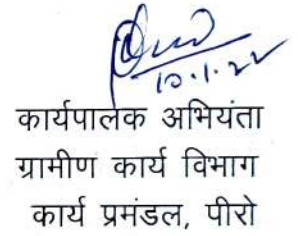 10.1.22
कार्यपालक अभियंता
ग्रामीण कार्य विभाग
कार्य प्रमंडल, पीरो